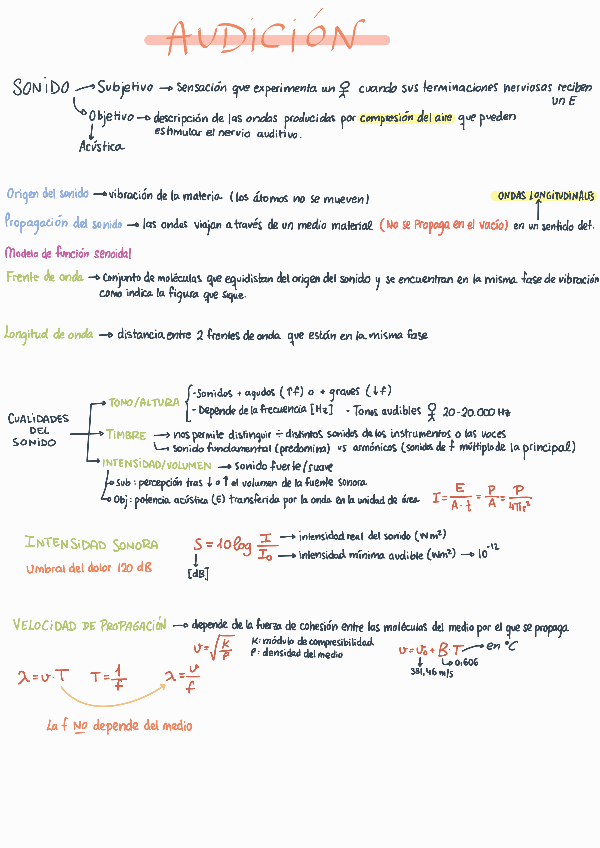 AUDICIÓN
SONIDO → Subjetivo → Sensación que experimenta un cuando sus terminaciones nerviosas reciben
un E
Objetivo → descripción de las ondas producidas por compresión del aire que pueden
estimular el nervio auditivo.
Acústica
Origen del sonido → vibración de la materia (los átomos no se mueven)
ONDAS LONGITUDINALES
Propagación del sonido → las ondas viajan a través de un medio material (No se propaga en el vacío) en un sentido det.
Modelo de función senoidal
Frente de onda → conjunto de moléculas que equidistan del origen del sonido y se encuentran en la misma fase de vibración
como indica la figura que sigue.
Longitud de onda → distancia entre 2 frentes de onda que están en la misma fase
CUALIDADES
DEL
SONIDO
TONO/ALTURA
- Sonidos + agudos (↑f) o + graves (↓f)
- Depende de la frecuencia [Hz] - Tonos audibles 20-20.000 Hz
TIMBRE → nos permite distinguir ÷ distintos sonidos de los instrumentos o las voces
sonido fundamental (predomina) vs armónicos (sonidos de f múltiplo de la principal)
INTENSIDAD/VOLUMEN → sonido fuerte/suave
Sub: percepción tras ↓ o ↑ el volumen de la fuente sonora
Obj: potencia acústica (E) transferida por la onda en la unidad de área I = E/A·t = P/A = P/4πr²
INTENSIDAD SONORA
S = 10 log I/I₀
→ intensidad real del sonido (Wm²)
→ intensidad mínima audible (Wm²) → 10⁻¹²
[dB]
Umbral del dolor 120 dB
VELOCIDAD DE PROPAGACIÓN → depende de la fuerza de cohesión entre las moléculas del medio por el que se propaga
v = √K/ρ
K: módulo de compresibilidad
ρ: densidad del medio
v = v₀ + B·T → en °C
0.606
331,46 m/s
λ = v·T T = 1/f λ = v/f
La f NO depende del medio